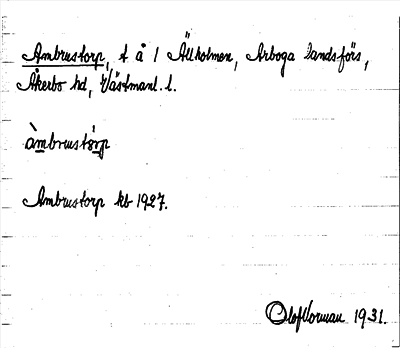 Ambrustorp, t å 1 Ällholmen, Arboga landsförs,
Åkerbo hd, Västmanl. l.
àmbrustórp
Ambrustorp kb 1927.
Olof Norman 1931.